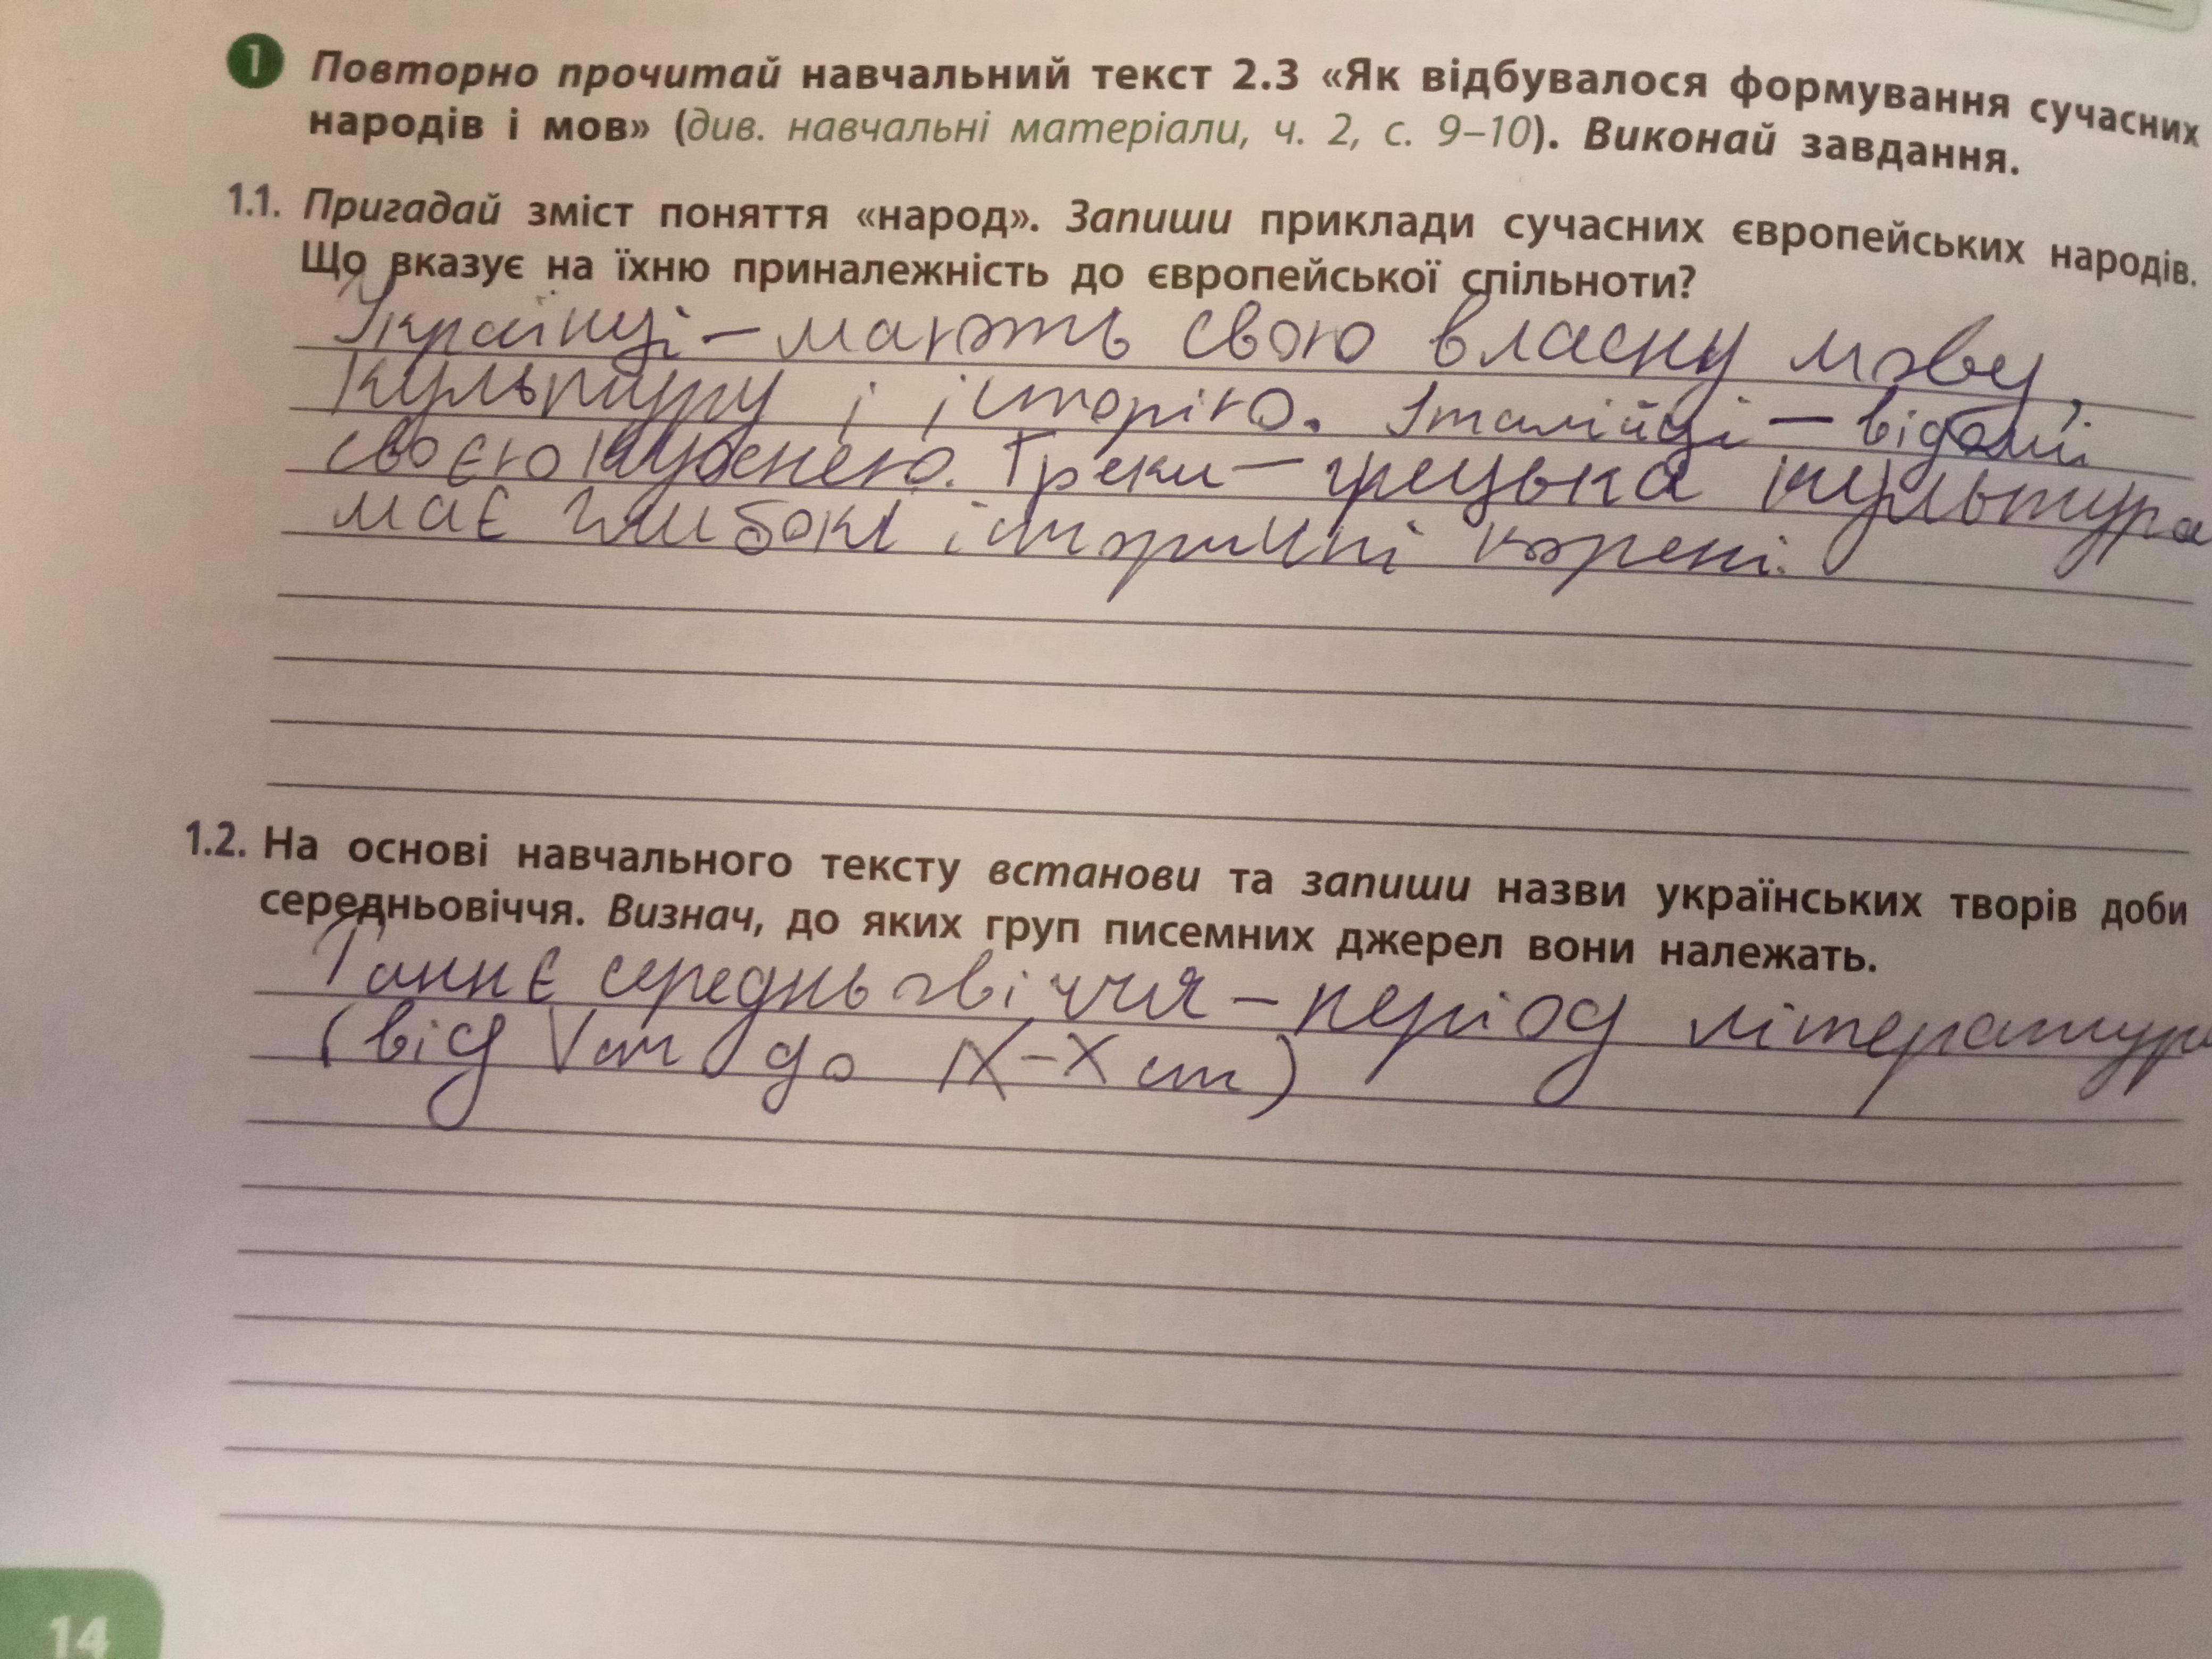 1 Повторно прочитай навчальний текст 2.3 «Як відбувалося формування сучасних
народів і мов» (див. навчальні матеріали, ч. 2, с. 9–10). Виконай завдання.
1.1. Пригадай зміст поняття «народ». Запиши приклади сучасних європейських народів.
Що вказує на їхню приналежність до європейської спільноти?
Українці – мають свою власну мову,
культуру і історію. Італійці – відомі
своєю кухнею. Греки – грецька культура
має глибокі історичні корені.
1.2. На основі навчального тексту встанови та запиши назви українських творів доби
середньовіччя. Визнач, до яких груп писемних джерел вони належать.
Раннє середньовіччя – період літератури
(від V ст до IX – X ст)
14